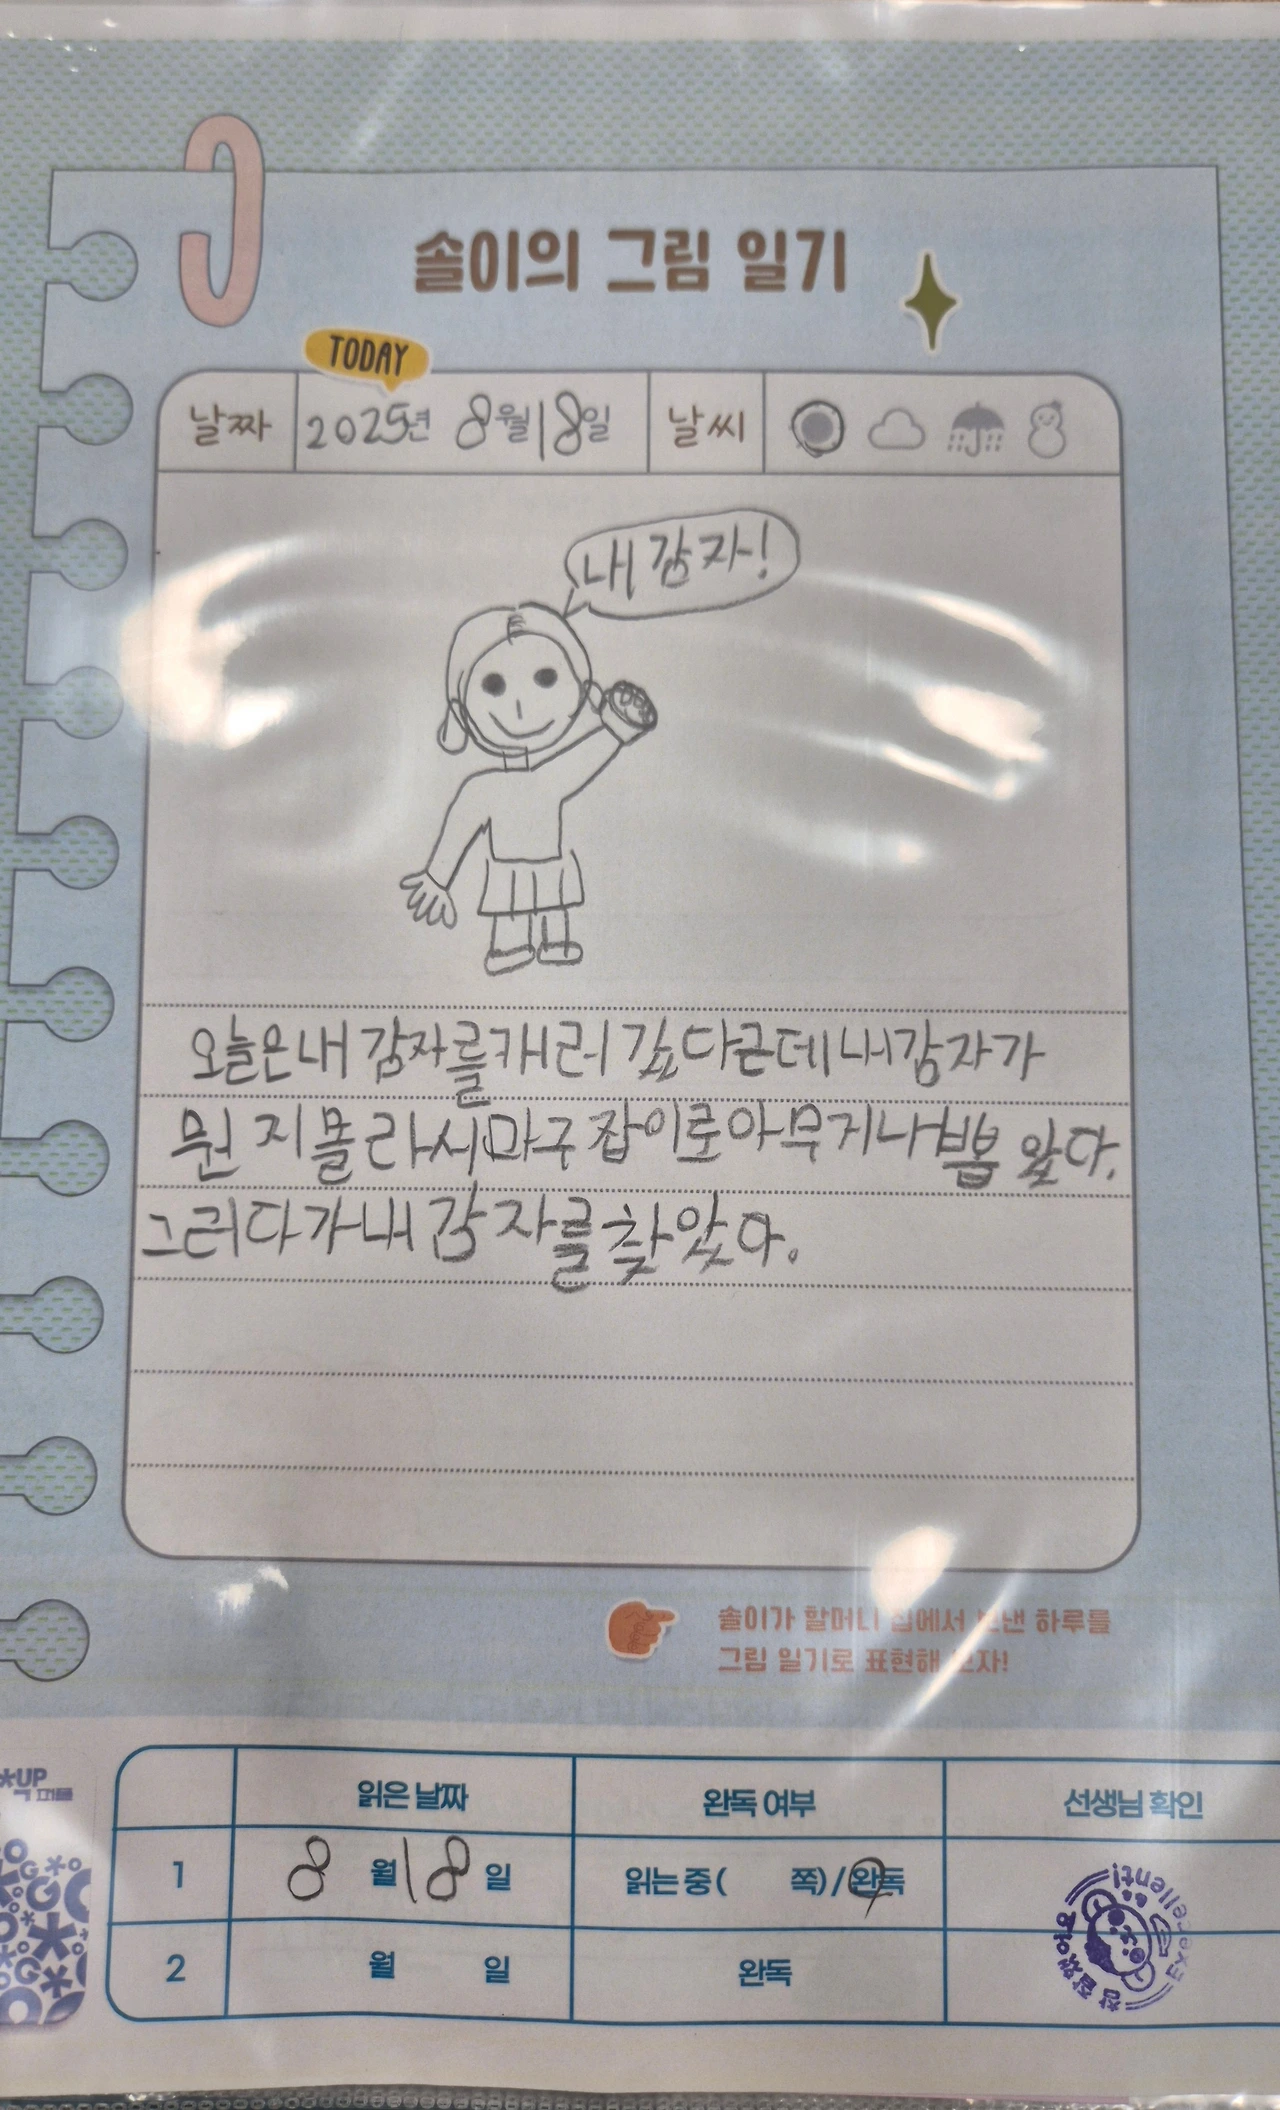 솔이의 그림 일기
TODAY
날짜 2025년 8월 18일 날씨
내 감자!
오늘은 내 감자를 캐러 갔다 근데 내 감자가
뭔지 몰라서 마구잡이로 아무거나 뽑았다.
그러다가 내 감자를 찾았다.
솔이가 할머니 집에서 보낸 하루를
그림 일기로 표현해 보자!
UP
읽은 날짜 완독 여부 선생님 확인
1 8월 18일 읽는 중( 쪽) / 완독
참 잘했어요 Excellent!
2 월 일 완독